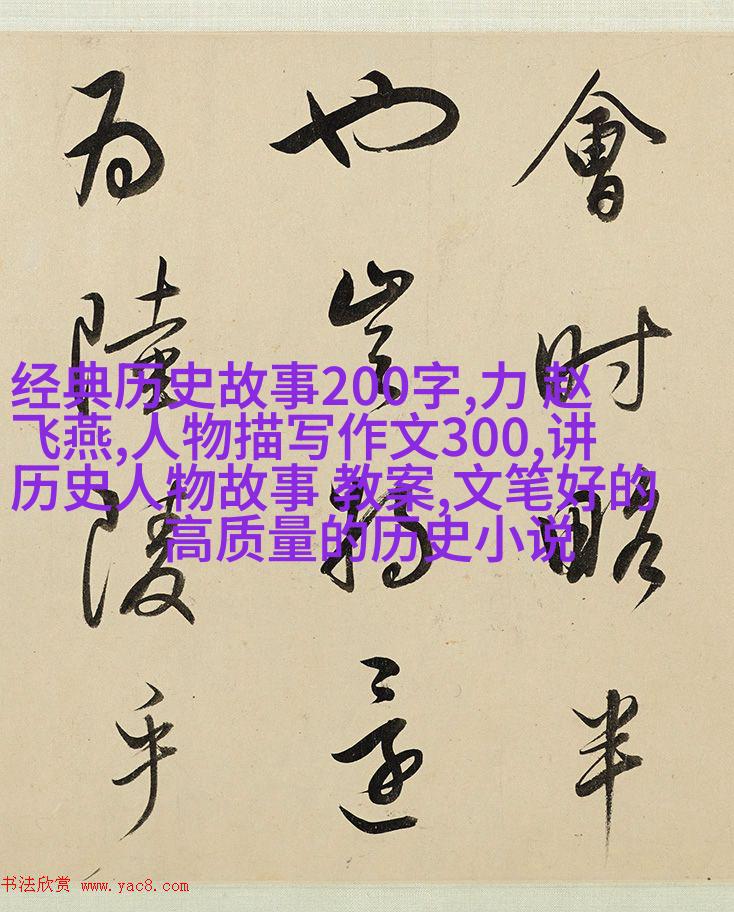 會时略半
也豈
為陵乎
经典历史故事200字,力 赵
飞燕,人物描写作文300,讲
历史人物故事 教案,文笔好的
高质量的历史小说
书法欣赏 www.yac8.com